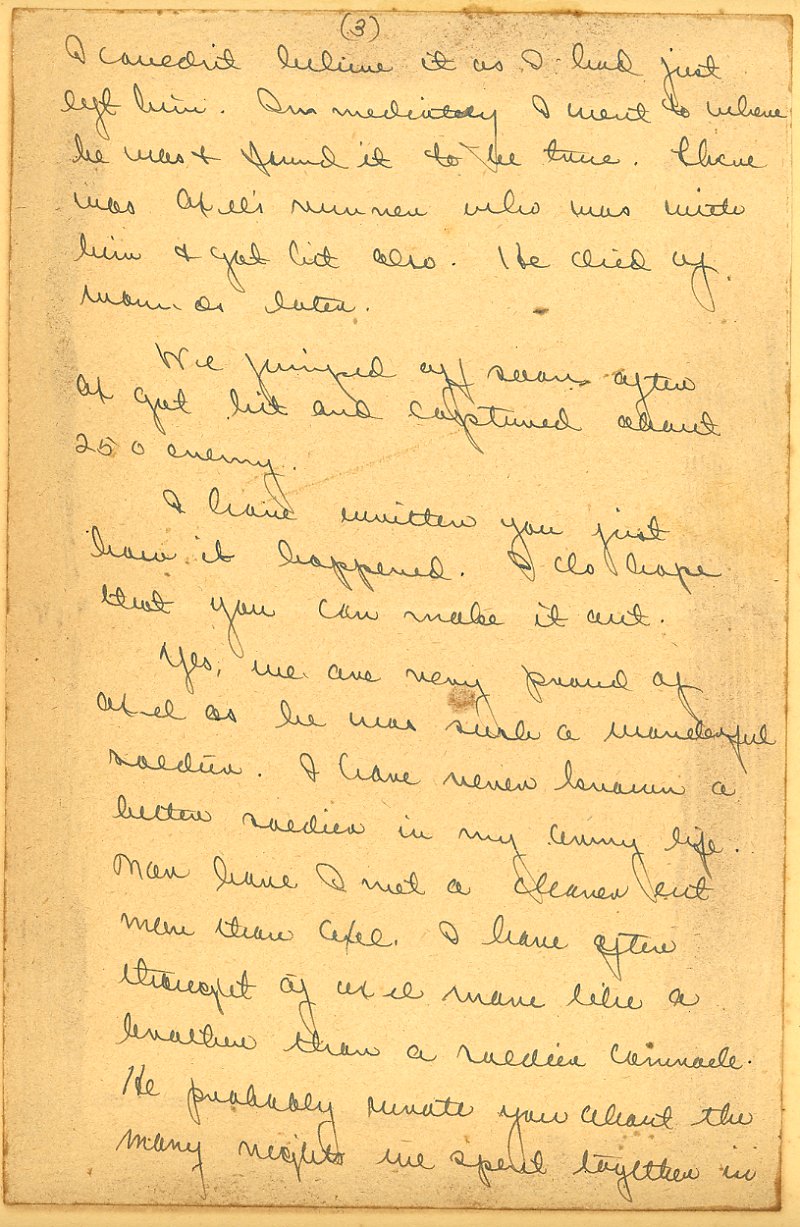 (3)
I couldn't believe it as I had just
left him. Immediately I went to where
he was & found it to be true. There
was Axel's runner who was with
him & got hit also. He died of
wounds later.
We jumped off soon after
Ax got hit and captured about
250 enemy.
I have written you just
how it happened. I do hope
that you can make it out.
Yes, we are very proud of
Axel as he was such a wonderful
soldier. I have never known a
better soldier in my Army life.
Nor have I met a cleaner cut
man than Axel. I have often
thought of Axel more like a
brother than a soldier comrade.
He probably wrote you about the
many nights we spent together in